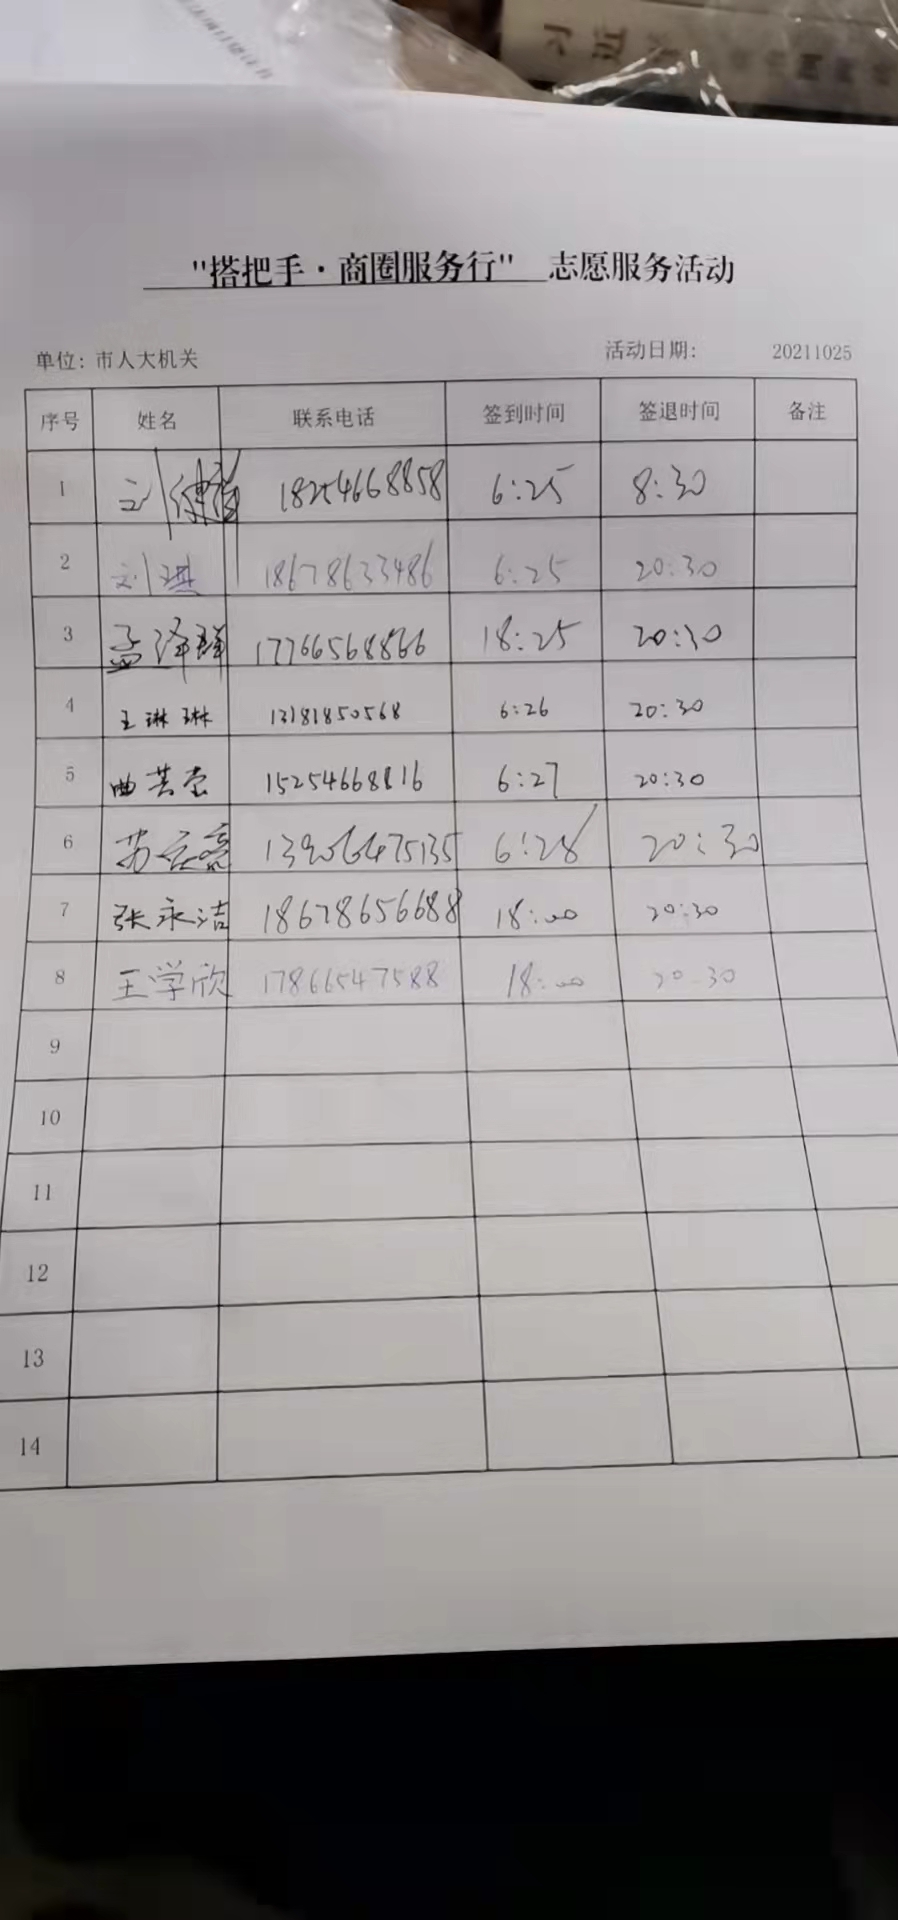 习近
"搭把手·商圈服务行" 志愿服务活动
单位: 市人大机关 活动日期: 20211025
序号 姓名 联系电话 签到时间 签退时间 备注
1 刘 18254668858 6:25 8:30
2 刘琪 18678633486 6:25 20:30
3 孟泽群 17766568866 18:25 20:30
4 王琳琳 13181850568 6:26 20:30
5 曲 15254668816 6:27 20:30
6 苏 13906475135 6:28 20:30
7 张永洁 18678656688 18:00 20:30
8 王学欣 17866547588 18:00 20:30
9
10
11
12
13
14